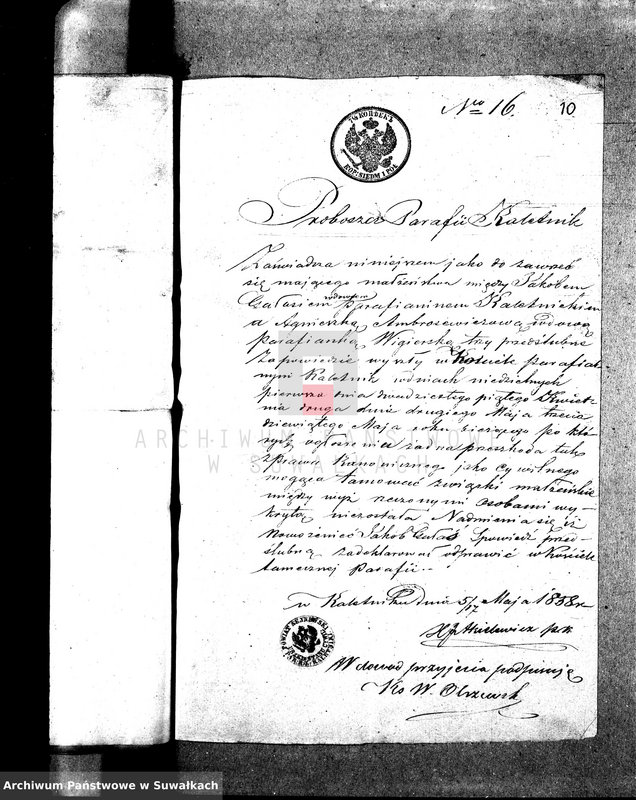 Nro 16.
10
7½ КОПѢЕКЪ
KOP. SIEDM I PÓŁ
Proboszcz Parafii Kaletnik
Zaświadcza niniejszem jako do zawrzeć
się mającego małżeństwa między Jakóbem
Gałasiem wdowcem parafianinem Kaletnickim
a Agnieszką Ambrosewiczową wdową
parafianką Wigierską trzy przedślubne
Zapowiedzie wyszły w Kościele parafial-
nym Kaletnik w dniach niedzielnych
pierwsza dnia dwudziestego piątego Kwiet-
nia druga dnia drugiego Maja trzecia
dziewiątego Maja roku bieżącego po któ-
rych ogłoszeniu żadna przeszkoda tak
z prawa Kanonicznego jako cywilnego
mogąca tamować związki małżeńskie
między wyż rzeczonymi osobami wy-
krytą niezostała Nadmienia się iż
Nowożeniec Jakób Gałaś Spowiedź przed-
ślubną zadeklarował odprawić w Kościele
tamecznej Parafii.
w Kaletniku dnia 5/17 Maja 1858 r
W dowód przyjęcia podpisuję
Ks W.
ARCHIWUM PAŃSTWOWE
W SUWAŁKACH
Archiwum Państwowe w Suwałkach